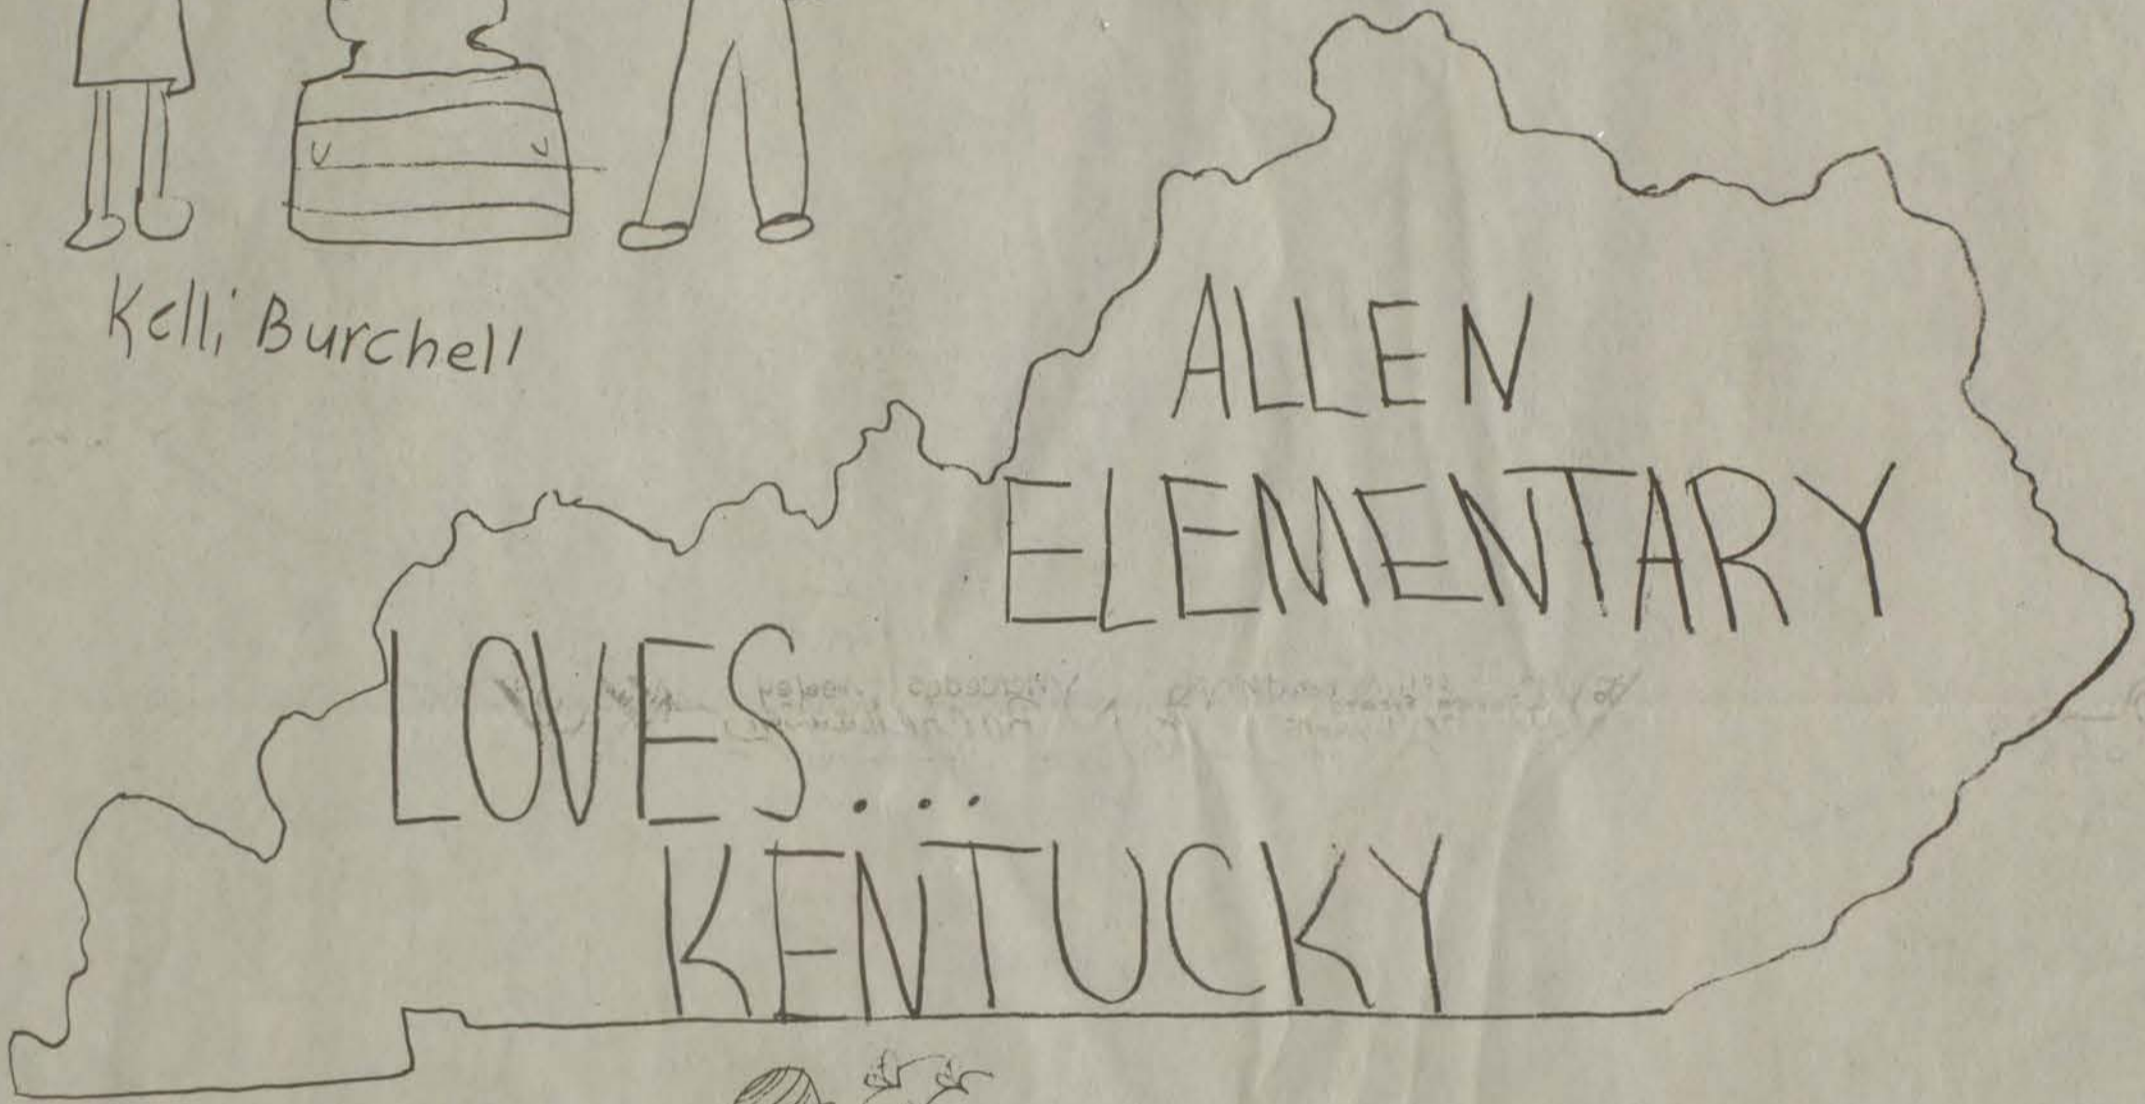 Kelli Burchell
ALLEN
ELEMENTARY
LOVES...
KENTUCKY